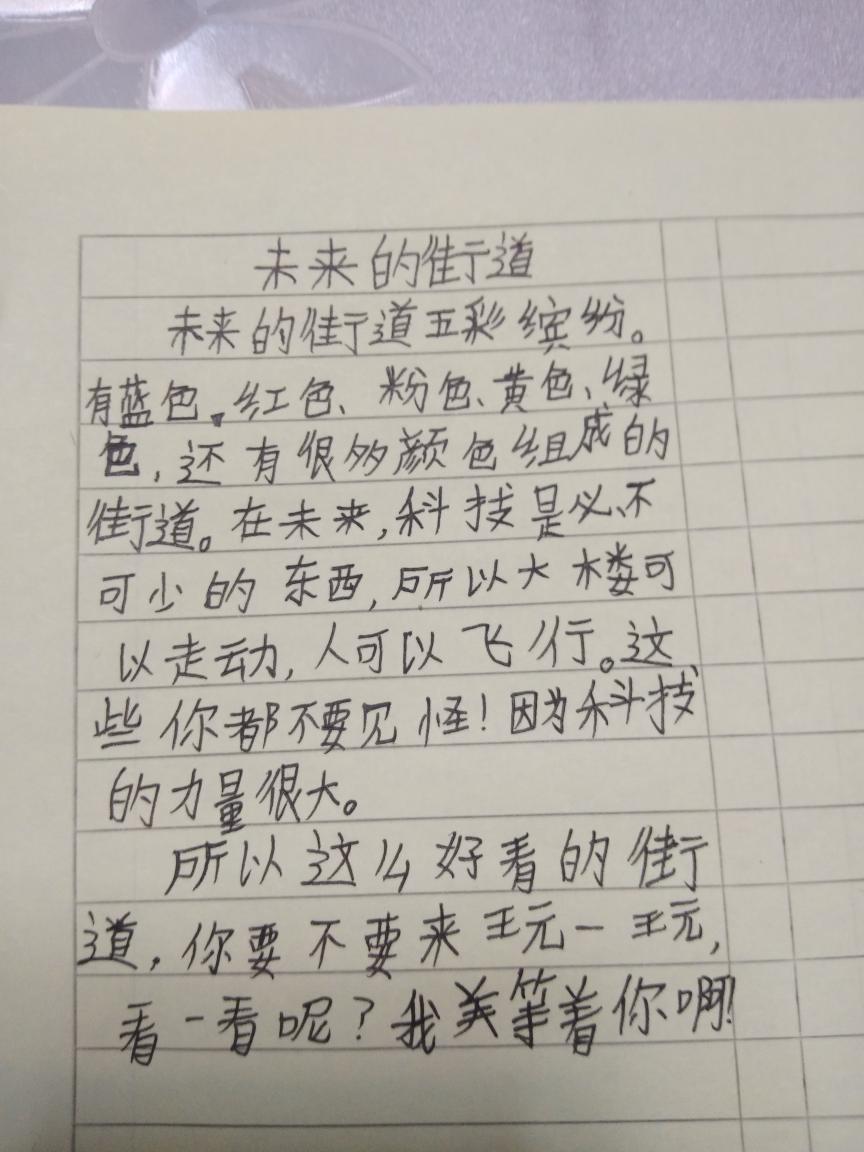 未来的街道
未来的街道五彩缤纷。
有蓝色、红色、粉色、黄色、绿
色，还有很多颜色组成的
街道。在未来，科技是必不
可少的东西，所以大楼可
以走动，人可以飞行。这
些你都不要见怪！因为科技
的力量很大。
所以这么好看的街
道，你要不要来玩一玩，
看一看呢？我等着你啊！